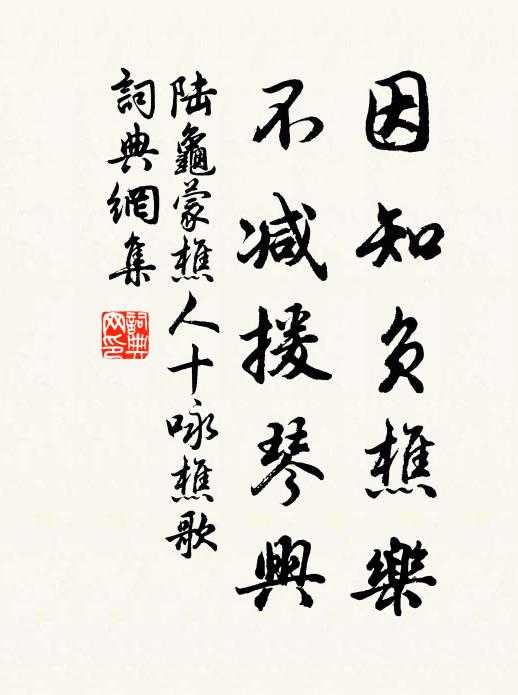 因知负樵樂
不减援琴興
陆龜蒙樵人十咏樵歌
詞典網集
詞典网印